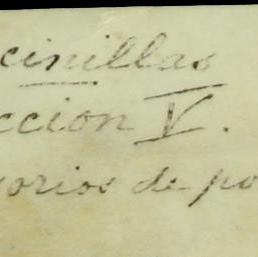 cinillas
ccion V.
orios de po